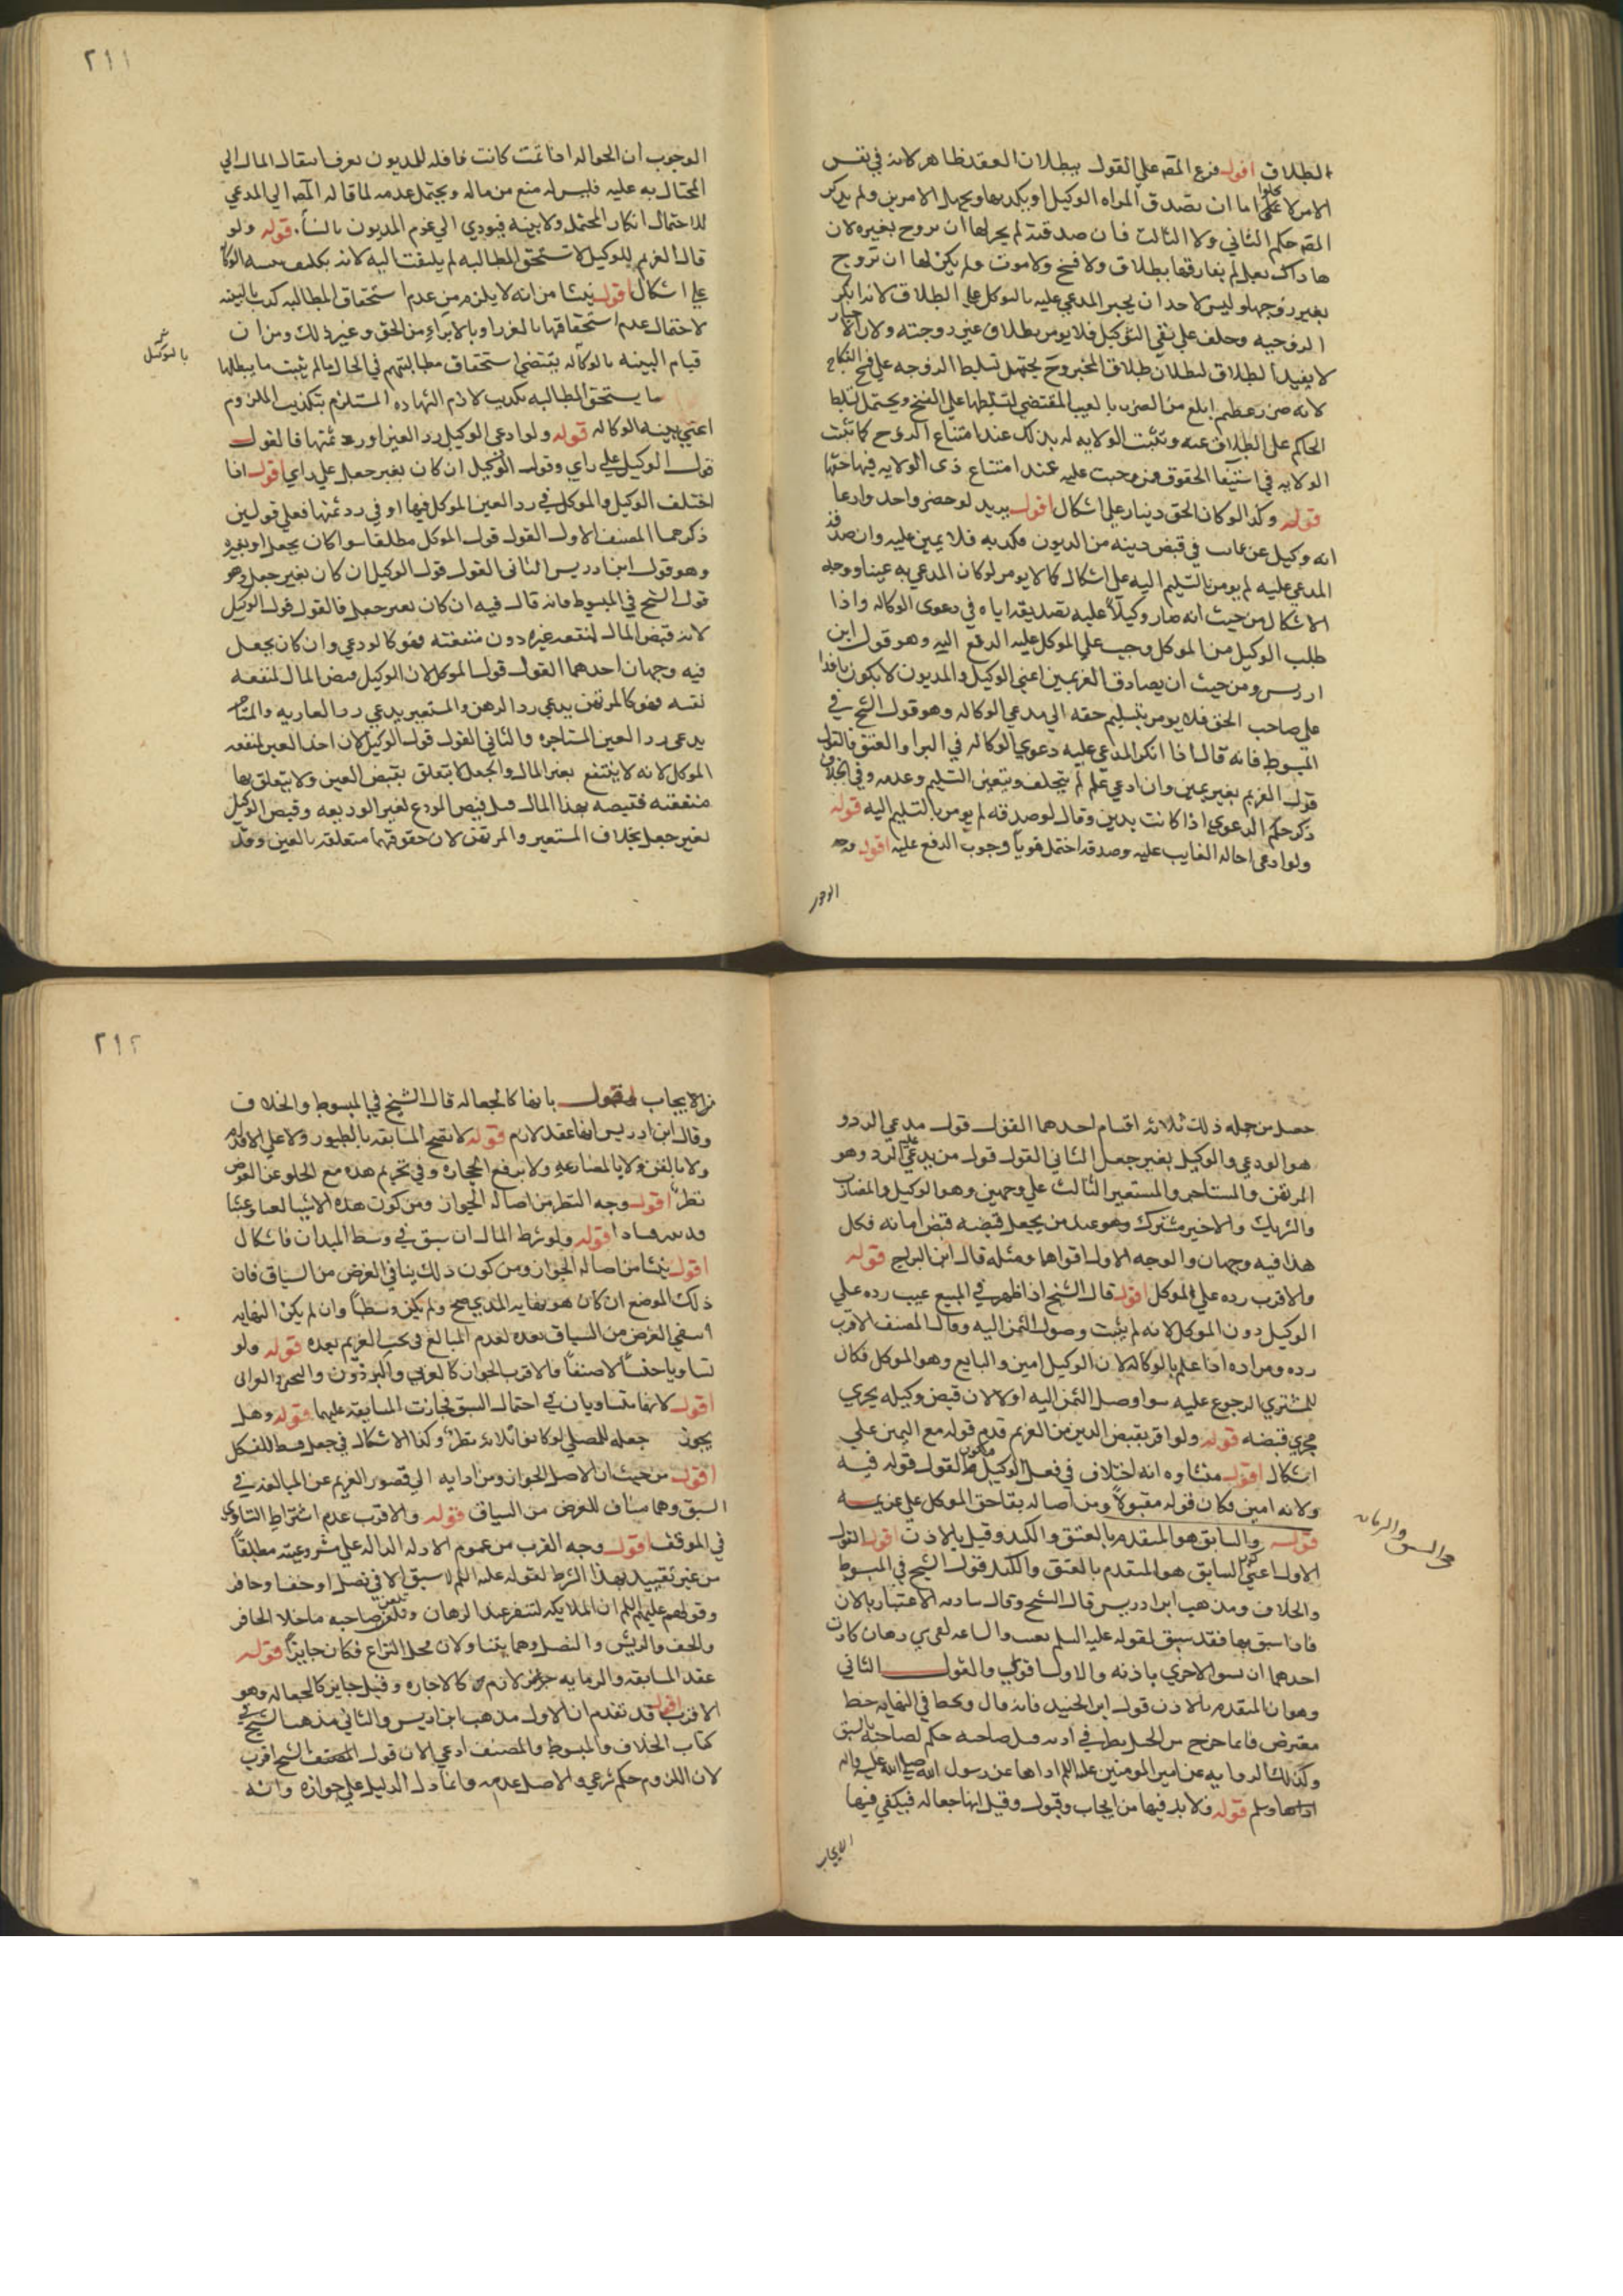 الطلاق اقول فرع المص علي القول ببطلان العقد ظاهر لانه في نفس
الامر لا يخلوا اما ان تصدق المراه الوكيل او تكذبها ويجهل الامرين ولم يذكر
المص حكم الثاني ولا الثالث فان صدقته لم يجز لها ان تتزوج بغيره لان
هذاك بعل لم يفارقها بطلاق ولا فسخ ولا موت ولم يكن لها ان تزوج
بغير زوجها وليس لاحد ان يجبر المدعي عليه بالتوكل علي الطلاق لانه انكر
الزوجيه وحلف علي نفي التوكيل فلا يومر بطلاق غير زوجته ولان الاجبار
لا يفيد الطلاق لبطلان طلاق المجبر وح يحتمل تسليط الزوجه علي فسخ النكاح
لانه ضرر عظيم ابلغ من الضرر بالعيب المقتضي لتسلطها علي الفسخ ويحتمل تسلط
الحاكم علي الطلاق عنه وتثبت الولايه له بذلك عند امتناع الزوج كما تثبت
الولايه في استيفا الحقوق ممن وجبت عليه عند امتناع ذي الولايه فيها حقها
قوله وكذا لو كان الحق دينار علي اشكال اقول يريد لو حضر واحد وادعا
انه وكيل عن غايب في قبض دينه من المديون فكذبه فلا يمين عليه وان صدقه
المدعي عليه لم يومر بالتسليم اليه علي اشكال كما لا يومر لو كان المدعي به عينا ووجه
الاشكال من حيث انه صار وكيلا عليه بتصديقه اياه في دعوى الوكاله واذا
طلب الوكيل من الموكل وجب علي الموكل عليه الدفع اليه وهو قول ابن
ادريس ومن حيث ان تصادق الغريمين اعني الوكيل والمديون لا يكون نافذا
علي صاحب الحق فلا يومر بتسليم حقه الي مدعي الوكاله وهو قول الشيخ في
المبسوط فانه قال اذا انكر المدعي عليه دعوي الوكاله في البرا والعتق فالقول
قول الغريم بغير يمين وان ادعي علم لم يحلف وبتعين التسليم وعدمه وفي الخلاف
ذكر حكم الدعوي اذا كانت بدين وقال لو صدقه لم يومر بالتسليم اليه قوله
ولو ادعي احاله الغايب عليه وصدقه احتمل قويا وجوب الدفع عليه اقول وجه
الوجوب
٢١١
الوجوب ان الحواله اذا تمت كانت ناقله للمديون يعرف انتقال المال الي
المحتال به عليه فليس له منع من ماله ويحتمل عدمه لما قاله المص الي المدعي
للاحتمال انكار المحتمل ولا بينه فيودي الي غرم المديون بالنسا. قوله ولو
قال الغريم للوكيل لا تستحق المطالبه لم يلتفت اليه لانه يكذب بينه الوكاله
علي اشكال اقول ينشا من انه لا يلزم من عدم استحقاق المطالبه كذب البينه
لاحتمال عدم استحقاقها بالعزل او بالابراء من الحق وغير ذلك ومن ان
قيام البينه بالوكاله يقتضي استحقاق مطالبتهم في الحال ما لم يثبت ما يبطلها
ما يستحق المطالبه تكذيب لازم الشهاده المستلزم بتكذيب الملزوم
اعني بينه الوكاله قوله ولو ادعي الوكيل رد العين او رد ثمنها فالقول
قول الوكيل علي راي وقول الوكيل ان كان بغير جعل علي راي اقول اذا
اختلف الوكيل والموكل في رد العين الموكل فيها او في رد ثمنها فعلي قولين
ذكرهما المصنف الاول القول قول الموكل مطلقا سوا كان بجعل او بغيره
وهو قول ابن ادريس الثاني القول قول الوكيل ان كان بغير جعل وهو
قول الشيخ في المبسوط فانه قال فيه ان كان بغير جعل فالقول قول الوكيل
لانه قبض المال لمنفعه غيره دون منفعته فهو كالودعي وان كان بجعل
فيه وجهان احدهما القول قول الموكل لان الوكيل قبض المال لمنفعه
نفسه فهو كالمرتهن يدعي رد الرهن والمستعير يدعي رد العاريه والمستاجر
يدعي رد العين المستاجره والثاني القول قول الوكيل لان اخذ العين لمنفعه
الموكل لانه لا ينتفع بعين المال والجعل لا يتعلق بقبض العين ولا يتعلق بها
منفعته فقبضه بهذا المال مثل قبض المودع لغير الوديعه وقبض الوكيل
بغير جعل بخلاف المستعير والمرتهن لان حقوقهما متعلقه بالعين وقد
بالتوكيل
حصل من جمله ذلك ثلاثه اقسام احدهما القول قول مدعي الرد و
هو الودعي والوكيل بغير جعل الثاني القول قول من يدعي عليه الرد وهو
المرتهن والمستاجر والمستعير الثالث علي وجهين وهو الوكيل والمضارب
والشريك والاجير مشترك وهو عند من يجعل قبضه قبض امانه فكل
هذا فيه وجهان والوجه الاول اقواها ومثله قال ابن البراج قوله
والاقرب رده علي الموكل اقول قال الشيخ اذا ظهر في المبيع عيب رده علي
الوكيل دون الموكل لانه لم يثبت وصول الثمن اليه وقال المصنف الاقرب
رده ومراده اذا علم بالوكاله لان الوكيل امين والبايع وهو الموكل فكان
للمشتري الرجوع عليه سوا وصل الثمن اليه او لا لان قبض وكيله يجري
مجري قبضه قوله ولو اقر بقبض الدين من الغريم قدم قوله مع اليمين علي
اشكال اقول منشاوه انه اختلاف في فعل الوكيل فيكون القول قوله فيه
ولانه امين فكان قوله مقبولا ومن اصاله بقا حق الموكل علي غريمه
قوله والسابق هو المتقدم بالعتق والكتد وقيل بالاذن اقول القول
الاول اعني كون السابق هو المتقدم بالعتق والكتد قول الشيخ في المبسوط
والخلاف ومذهب ابن ادريس قال الشيخ وقال الاعتبار بالاذن
فاذا سبق بها فقد سبق لقوله عليه السلم بعثت والساعه كفرسي رهان كادت
احدهما ان تسبق الاخري باذنه والاول اقوي والقول الثاني
وهو ان المتقدم بالاذن قول ابن الجنيد فانه قال ويخط في النهايه خط
معترض فايما خرج من الخيل بطرف اذنه قبل صاحبه حكم لصاحبه بالسبق
وكذلك الروايه عن امير المومنين عليه السلم اداها عن رسول الله صلي الله عليه واله
وسلم قوله ولا بد فيها من ايجاب وقبول وقيل انها جعاله فيكفي فيها
الايجاب
في السبق والرمايه
٢١٢
من الايجاب اقول بانها كالجعاله قال الشيخ في المبسوط والخلاف
وقال ابن ادريس انها عقد لازم قوله لا تصح المسابقه بالطيور ولا علي الاقدام
ولا بالسفن ولا بالمصارعه ولا برفع الحجاره وفي تحريم هذه مع الخلو عن العوض
نظر اقول وجه النظر من اصاله الجواز ومن كون هذه الاشيا لعبا وعبثا
قوله ولو شرط المال ان سبق في وسط الميدان فاشكال
اقول ينشا من اصاله الجواز ومن كون ذلك ينافي الغرض من السباق فان
ذلك الموضع ان كان هو نهايه المدي صح ولم يكن وسطا وان لم يكن النهايه
انتفي الغرض من السباق بعده لعدم المبالغ في الغريم بعده قوله ولو
تساويا جنسا لا صنفا فالاقرب الجواز كالعربي والبرذون والبختي والعرابي
اقول لانهما متساويان في احتمال السبق فجازت المسابقه عليهما قوله وهل
يجوز جعله للمصلي لو كانوا ثلاثه نظر وكذا الاشكال في جعل قسط للفسكل
اقول من حيث ان الاصل الجواز ومن ادايه الي قصور الغريم عن المبالغه في
السبق وهما مناف للغرض من السباق قوله والاقرب عدم اشتراط التساوي
في الموقف اقول وجه القرب من عموم الادله الداله علي مشروعيته مطلقا
من غير تقييد بهذا الشرط لقوله عليه السلم لا سبق الا في نصل او خف او حافر
وقولهم عليهم السلم ان الملايكه لتنفر عند الرهان وتلعن صاحبه ما خلا الحافر
والخف والريش والنصل وهما يتناولان محل النزاع فكان جايزا قوله
عقد المسابقه والرمايه لازم كالاجاره وقيل جايز كالجعاله وهو
الاقرب اقول قد تقدم ان الاول مذهب ابن ادريس والثاني مذهب الشيخ في
كتاب الخلاف والمبسوط والمصنف ادعي الان قول الشيخ اقرب
لان اللزوم حكم شرعي والاصل عدمه وانما دل الدليل علي جوازه وانه